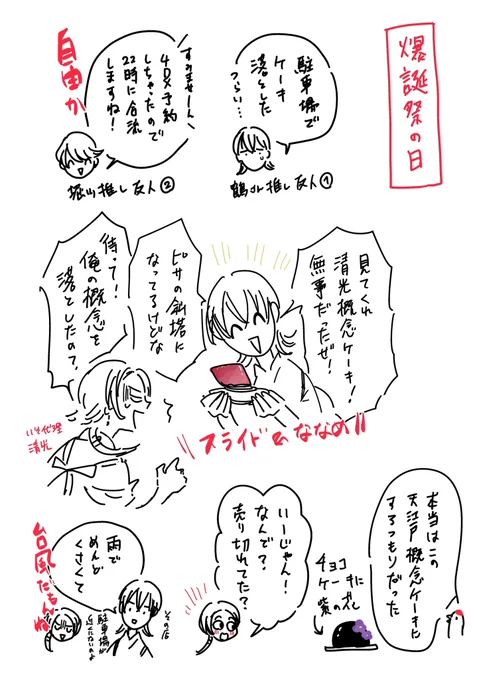 爆誕祭の日
駐車場で
ケーキ
落とした
つらい…
鶴さん推し友人①
すみませーん
4DX予約
しちゃったので
22時に合流
しますね!
推し友人②
自由か
見てくれ
清光概念ケーキ!
無事だったぜ!
ピサの斜塔に
なってるけどな
待って!
俺の概念を
落としたの?
清光
スライド&ななめ
本当はこの
大江戸概念ケーキに
するつもりだった
チョコ
ケーキに
紫の花
いーじゃん!
なんで?
売り切れてた?
雨で
めんど
くさくて
その店
駐車場が
近くにないのよ
台風だもんね